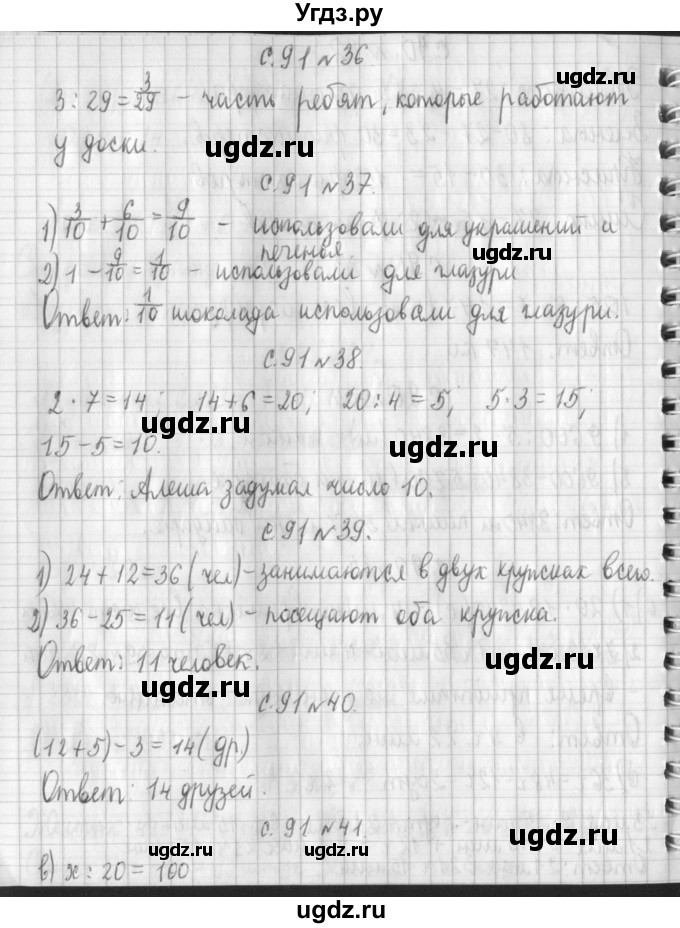 Угдз.ру
с.91 №36
3:29=3/29 - часть ребят, которые работают
у доски.
с.91 №37.
1) 3/10 + 6/10 = 9/10 - использовали для украшений и
печенья.
2) 1 - 9/10 = 1/10 - использовали для глазури
Ответ: 1/10 шоколада использовали для глазури.
с.91 №38.
2·7=14; 14+6=20; 20:4=5; 5·3=15;
15-5=10.
Ответ: Алеша задумал число 10.
с.91 №39.
1) 24+12=36 (чел) - занимаются в двух кружках всего.
2) 36-25=11 (чел) - посещают оба кружка.
Ответ: 11 человек.
с.91 №40.
(12+5)-3=14 (др)
Ответ: 14 друзей.
с.91 №41.
в) x:20=100
ugdz.ru
ugdz.ru
ugdz.ru
ugdz.ru
ugdz.ru
ugdz.ru
ugdz.ru
ugdz.ru
ugdz.ru
ugdz.ru
ugdz.ru
ugdz.ru
ugdz.ru